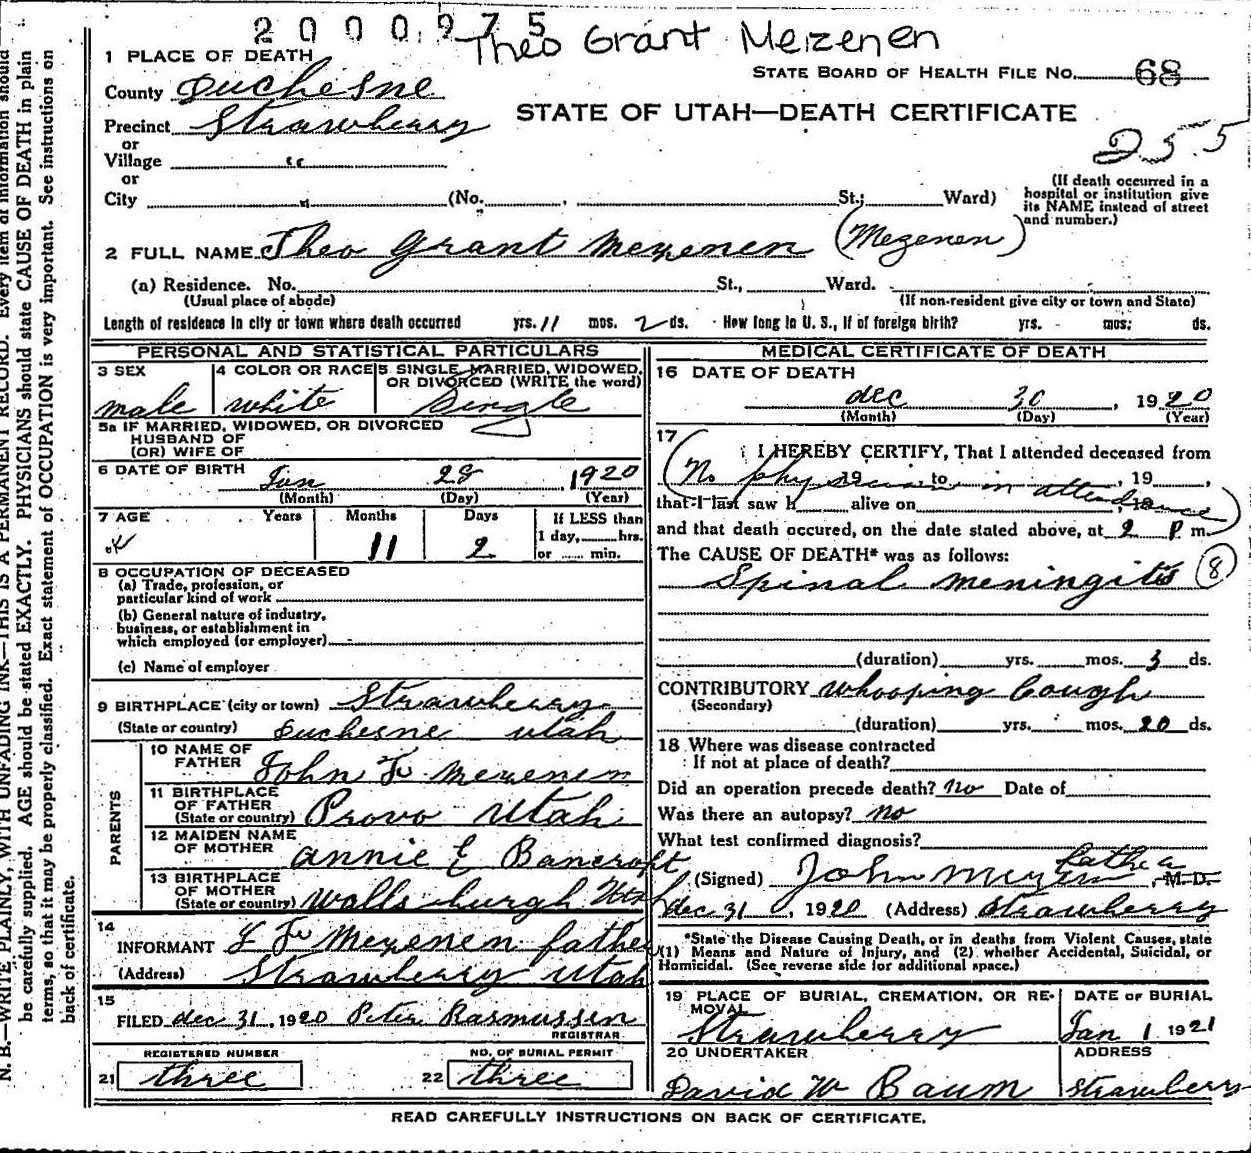 2000975
Theo Grant Meizenen
1 PLACE OF DEATH
STATE BOARD OF HEALTH FILE No. 68
County Duchesne
STATE OF UTAH—DEATH CERTIFICATE
Precinct Strawberry
255
or
Village "
or
City " (No. St.; Ward)
(If death occurred in a
hospital or institution give
its NAME instead of street
and number.)
2 FULL NAME Theo Grant Mezenen (Mezenen)
(a) Residence. No. St., Ward.
(Usual place of abode) (If non-resident give city or town and State)
Length of residence in city or town where death occurred yrs. 11 mos. 2 ds. How long in U. S., if of foreign birth? yrs. mos. ds.
PERSONAL AND STATISTICAL PARTICULARS
3 SEX 4 COLOR OR RACE 5 SINGLE, MARRIED, WIDOWED,
OR DIVORCED (WRITE the word)
male white Single
5a IF MARRIED, WIDOWED, OR DIVORCED
HUSBAND OF
(OR) WIFE OF
6 DATE OF BIRTH Jan 28 1920
(Month) (Day) (Year)
7 AGE Years Months Days If LESS than
1 day, hrs.
or min.
11 2
8 OCCUPATION OF DECEASED
(a) Trade, profession, or
particular kind of work
(b) General nature of industry,
business, or establishment in
which employed (or employer)
(c) Name of employer
9 BIRTHPLACE (city or town) Strawberry
(State or country) Duchesne Utah
PARENTS
10 NAME OF
FATHER John F Mezenen
11 BIRTHPLACE
OF FATHER
(State or country) Provo Utah
12 MAIDEN NAME
OF MOTHER Annie E Bancroft
13 BIRTHPLACE
OF MOTHER
(State or country) Wallsburgh Utah
14
INFORMANT J F Mezenen father
(Address) Strawberry Utah
15
FILED Dec 31, 1920 Peter Rasmussen
REGISTRAR
REGISTERED NUMBER NO. OF BURIAL PERMIT
21 three 22 three
MEDICAL CERTIFICATE OF DEATH
16 DATE OF DEATH
Dec 30, 1920
(Month) (Day) (Year)
17
I HEREBY CERTIFY, That I attended deceased from
, 19 to , 19 ,
(No physician in attendance)
that I last saw h alive on , 19
and that death occured, on the date stated above, at 2 P m.
The CAUSE OF DEATH* was as follows:
Spinal meningitis (8)
(duration) yrs. mos. 3 ds.
CONTRIBUTORY Whooping Cough
(Secondary)
(duration) yrs. mos. 20 ds.
18 Where was disease contracted
If not at place of death?
Did an operation precede death? No Date of
Was there an autopsy? No
What test confirmed diagnosis?
father
(Signed) John Mezenen, M.D.
Dec 31, 1920 (Address) Strawberry
*State the Disease Causing Death, or in deaths from Violent Causes, state
(1) Means and Nature of Injury, and (2) whether Accidental, Suicidal, or
Homicidal. (See reverse side for additional space.)
19 PLACE OF BURIAL, CREMATION, OR RE-
MOVAL DATE OF BURIAL
Strawberry Jan 1 1921
20 UNDERTAKER ADDRESS
David W Baum Strawberry
READ CAREFULLY INSTRUCTIONS ON BACK OF CERTIFICATE.
N. B.—WRITE PLAINLY, WITH UNFADING INK—THIS IS A PERMANENT RECORD. Every item of information should
be carefully supplied. AGE should be stated EXACTLY. PHYSICIANS should state CAUSE OF DEATH in plain
terms, so that it may be properly classified. Exact statement of OCCUPATION is very important. See instructions on
back of certificate.